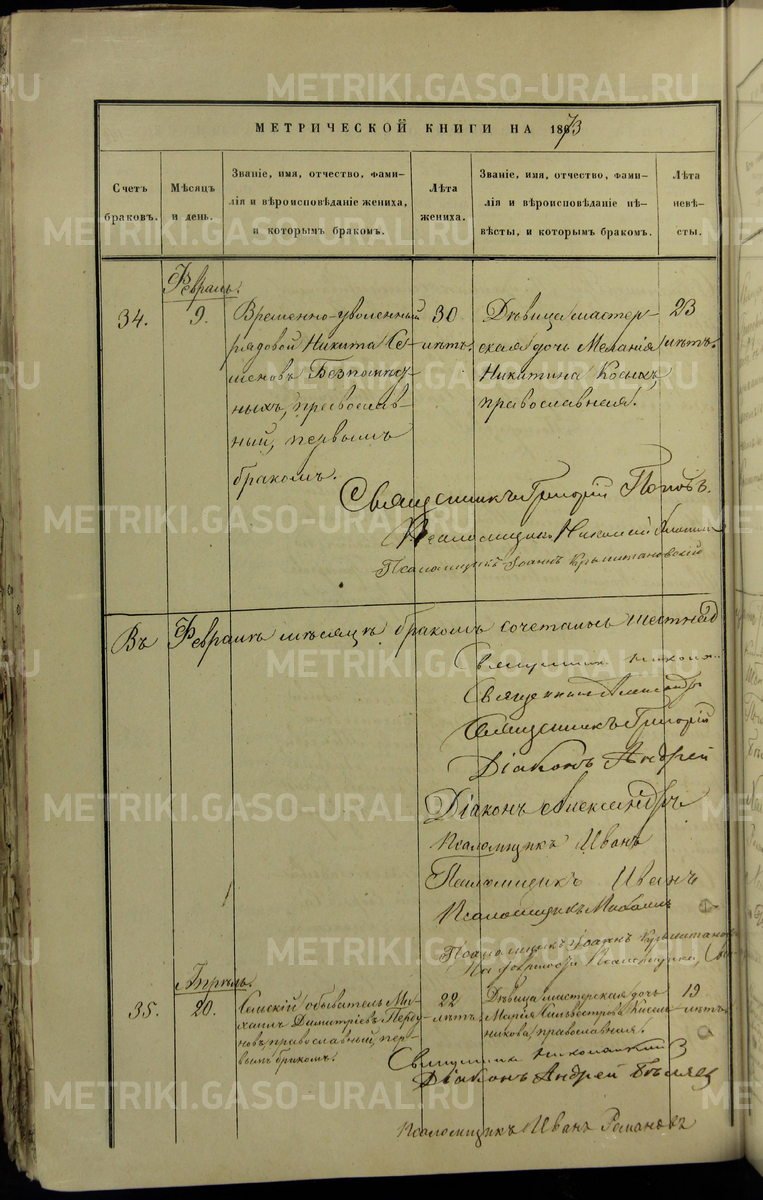 METRIKI.GASO-URAL.RU
МЕТРИЧЕСКОЙ КНИГИ НА 1873
Счетъ браковъ.
Мѣсяцъ и день.
Званіе, имя, отчество, фами-
лія и вѣроисповѣданіе жениха,
и которымъ бракомъ.
Лѣта жениха.
Званіе, имя, отчество, фами-
лія и вѣроисповѣданіе не-
вѣсты, и которымъ бракомъ.
Лѣта невѣ-
сты.
Февраль.
34.
9.
Временно-уволенный
рядовой Никита Се-
меновъ
ныхъ, православ-
ный, первымъ
бракомъ.
30
лѣтъ.
Дѣвица мастер-
ская дочь Меланія
Никитина Косыхъ,
православная.
23
лѣтъ.
Священникъ Григорій Поповъ.
Псаломщикъ Николай
Псаломщикъ Іоаннъ
Въ Февралѣ мѣсяцѣ бракомъ сочетались шестнад
Священникъ
Священникъ Александръ
Священникъ Григорій
Діаконъ Андрей
Діаконъ Александръ
Псаломщикъ Иванъ
Псаломщикъ Иванъ
Псаломщикъ
Псаломщикъ Іоаннъ
Апрѣль.
35.
20.
Сельскій обыватель Ми-
хаилъ Димитріевъ
православный, пер-
вымъ бракомъ.
22
лѣтъ.
Дѣвица мастерская дочь
Марія Сильвестрова
православная.
19
лѣтъ.
Священникъ
Діаконъ Андрей Бѣляе
Псаломщикъ Иванъ Романовъ